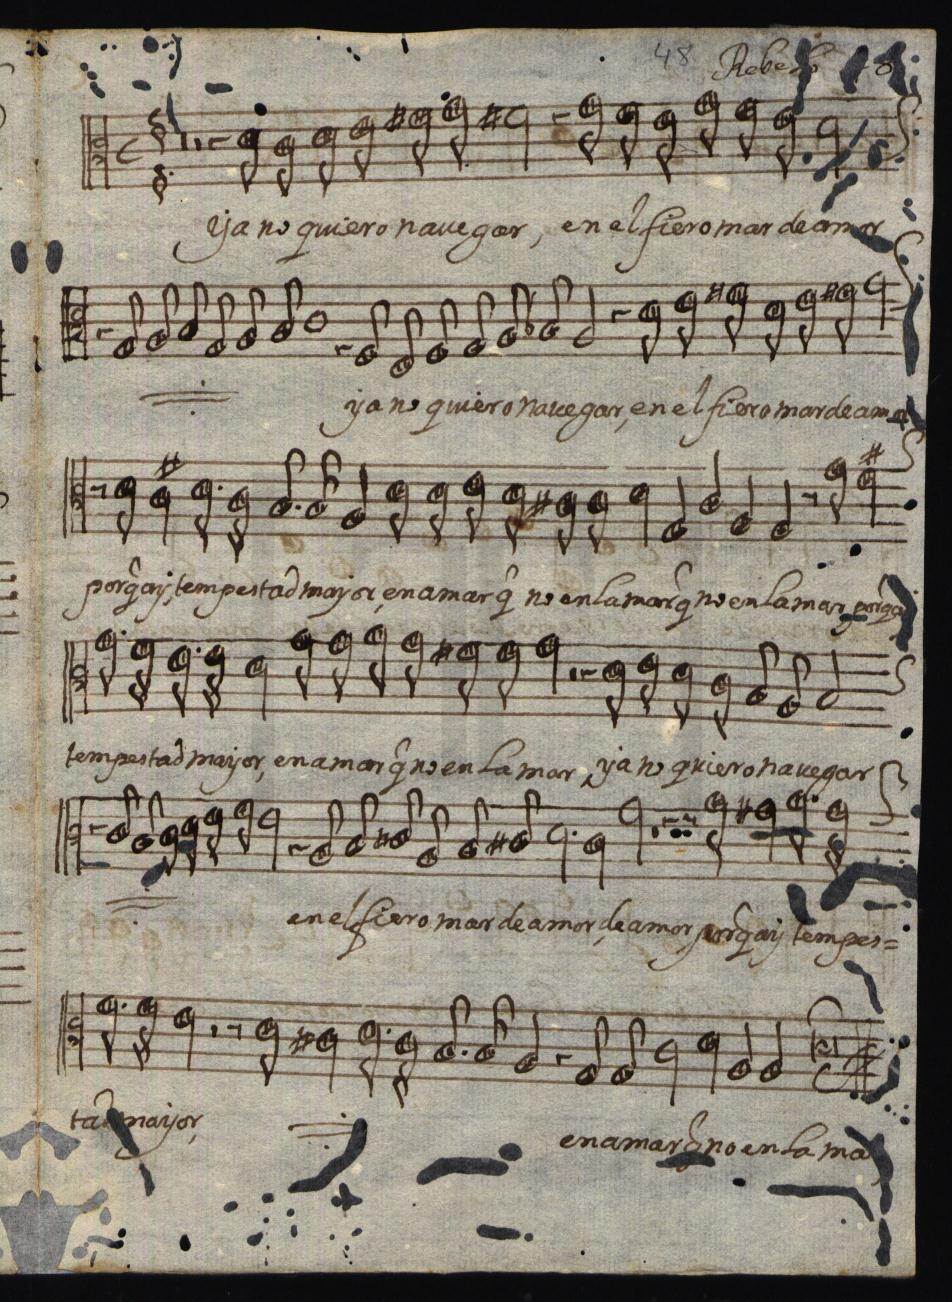 48
ya no quiero nauegar, en el fiero mar de amor
ya no quiero nauegar, en el fiero mar de amor
porq̃ ay, tempestad mayor, en amar q̃ no en la mar q̃ no en la mar, porq̃ ay
tempestad mayor, en amar q̃ no en la mar, ya no quiero nauegar
en el fiero mar de amor, de amor, porq̃ ay tempes=
tad mayor,
en amar q̃ no en la mar